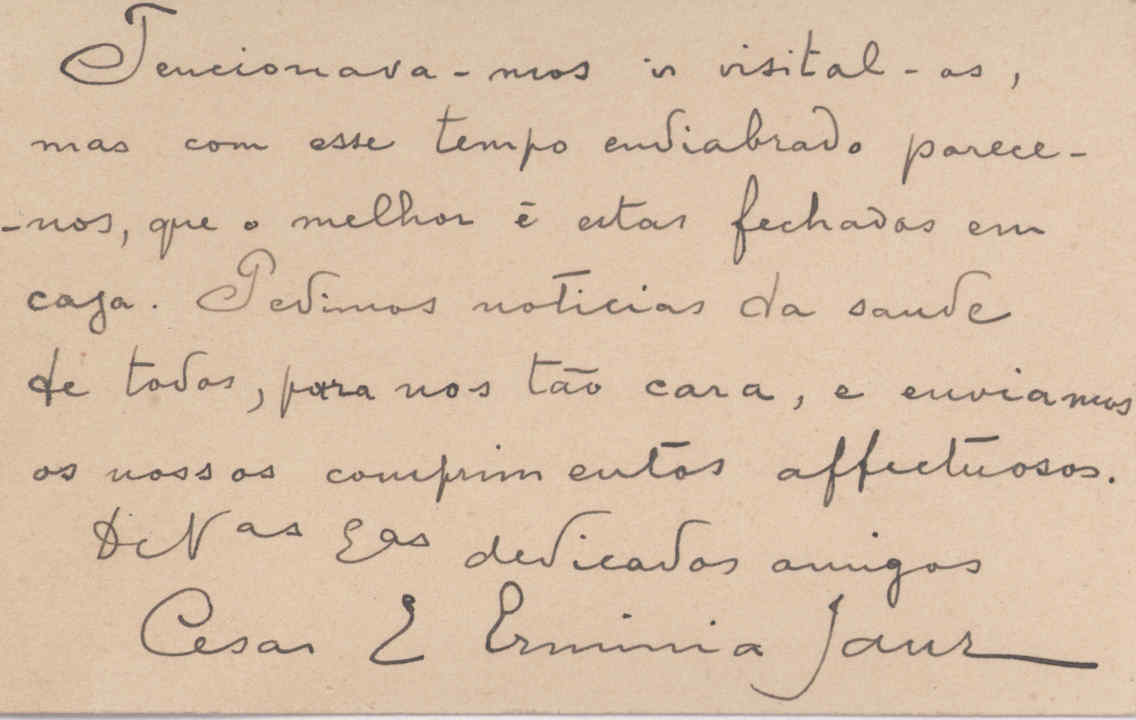 Tencionava-mos ir visital-os,
mas com esse tempo endiabrado parece-
-nos, que o melhor é estar fechados em
casa. Pedimos noticias da saude
de todos, para nos tão cara, e enviamos
os nossos comprimentos affectuosos.
De V as Exas dedicados amigos
Cesar E Erminia